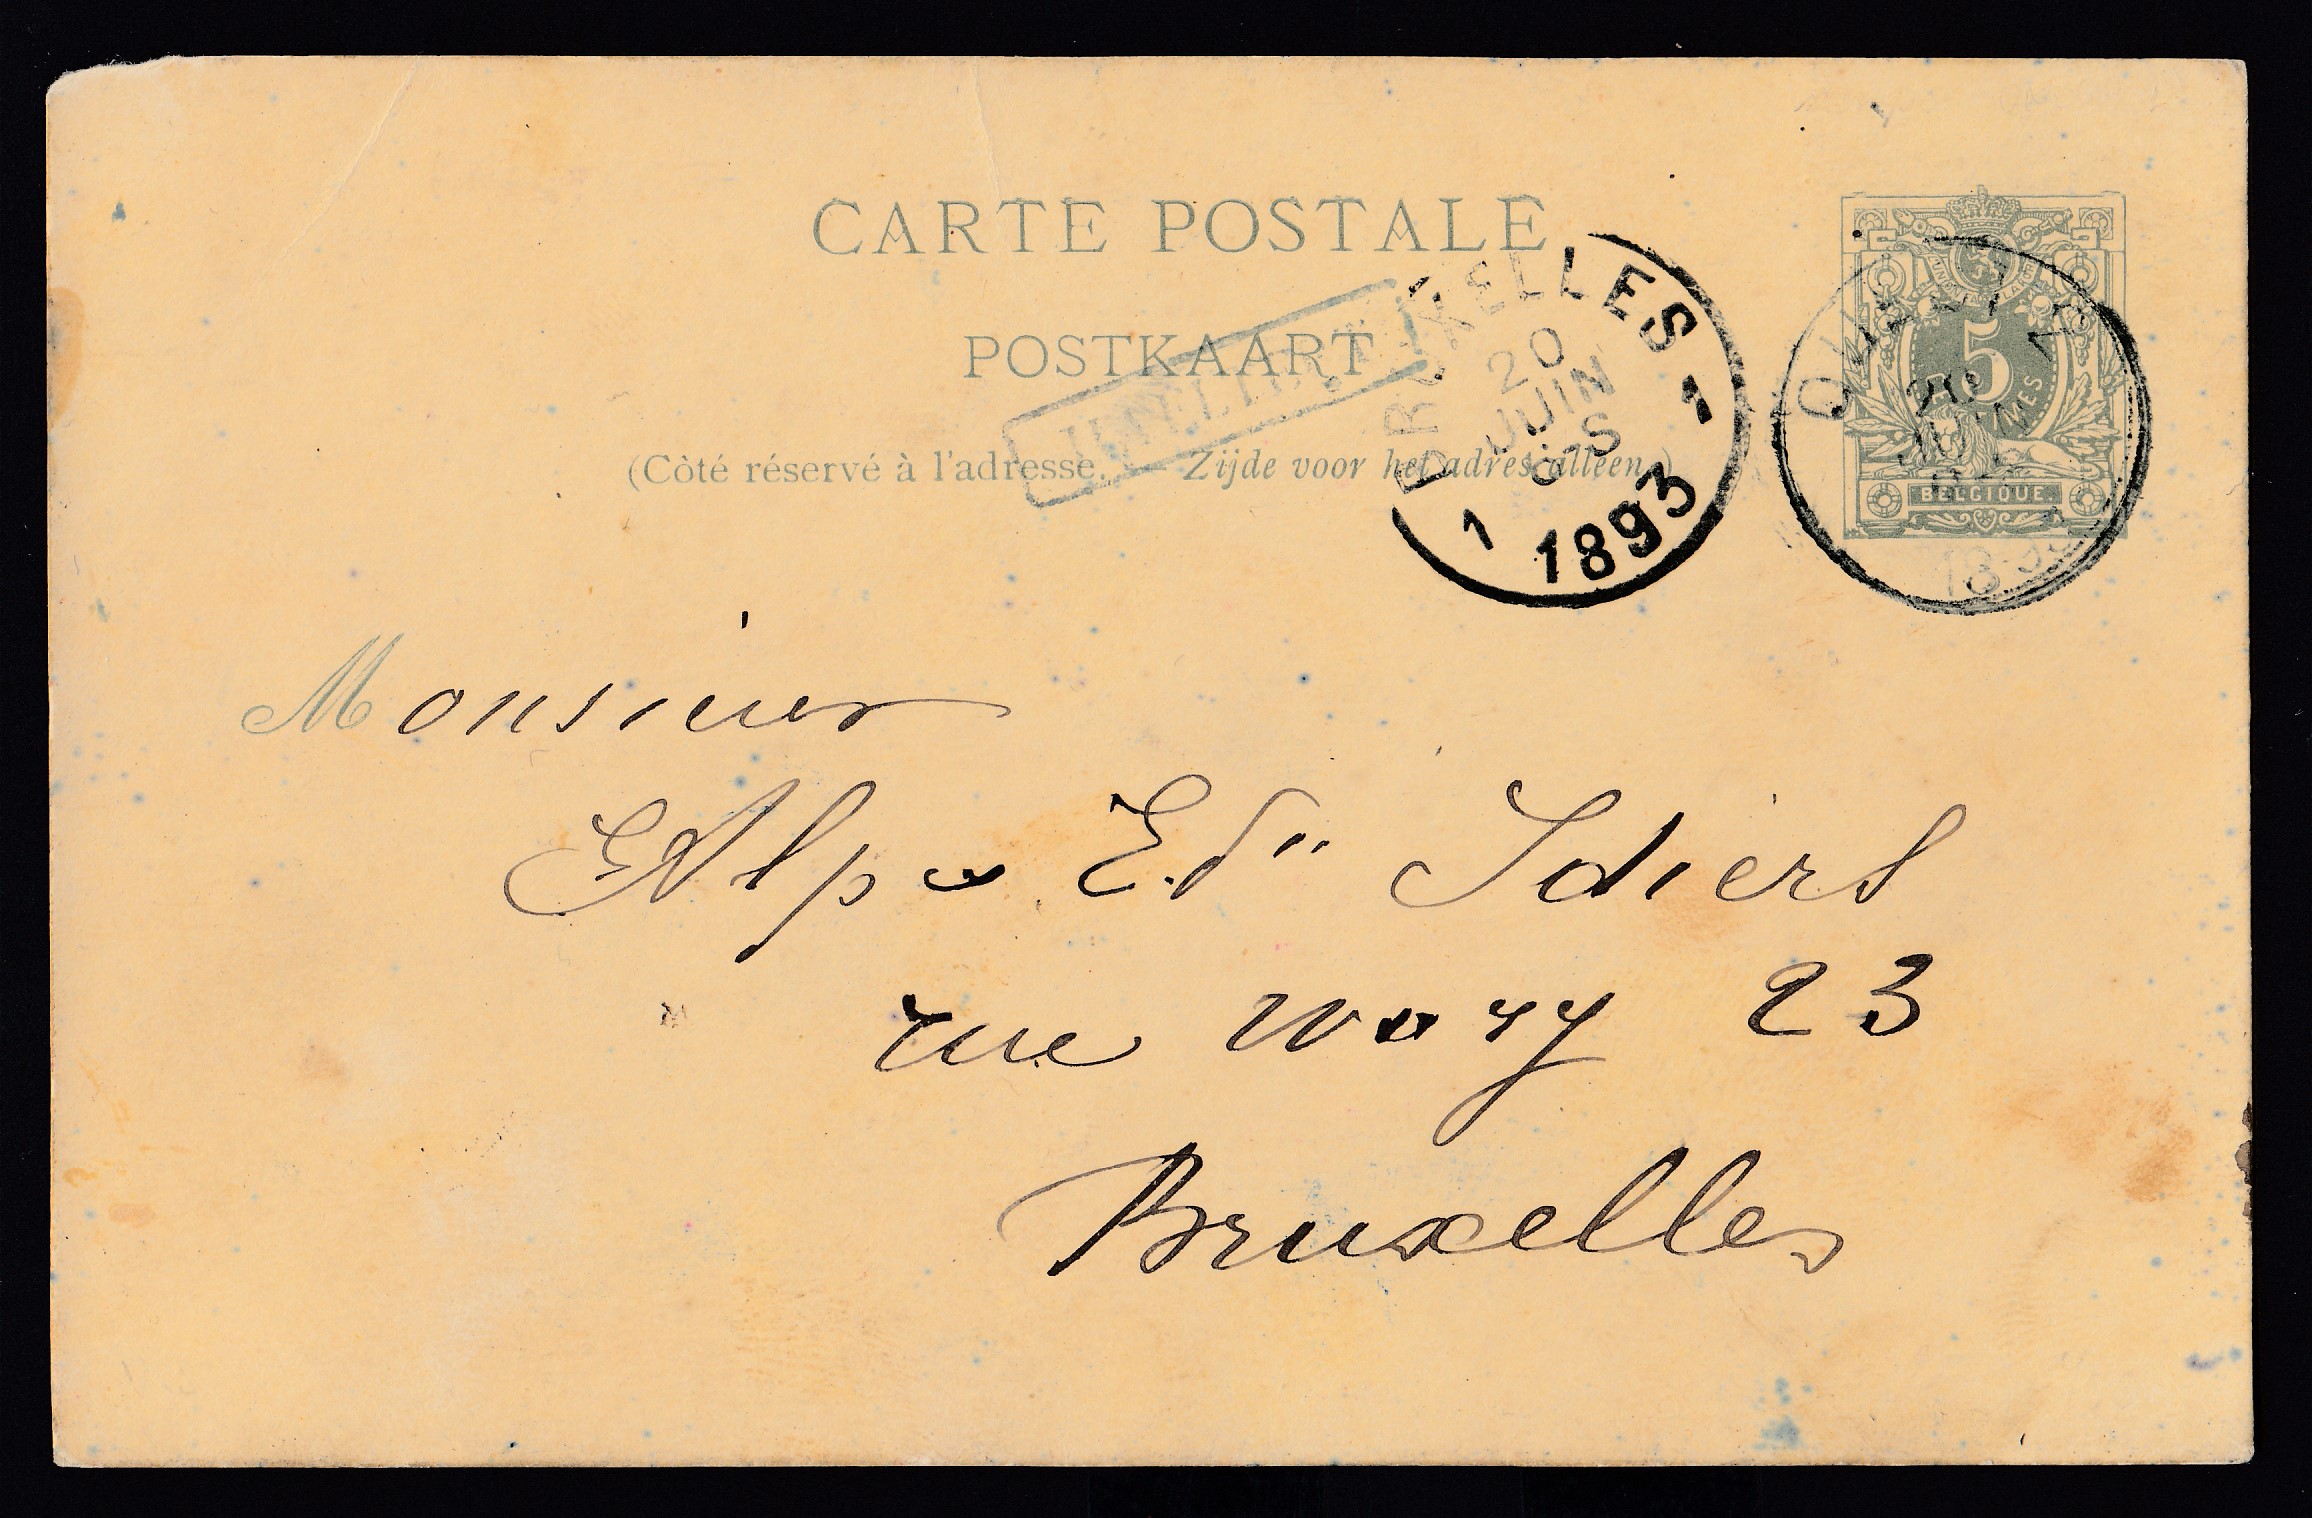 CARTE POSTALE
POSTKAART
(Côté réservé à l'adresse. — Zijde voor het adres alleen.)
BRUXELLES
20
JUIN
8-S
1 1893 1
UNION FAIT LA FORCE
5
CENTIMES
BELGIQUE.
20
Monsieur
Alp Ed" Idiers
rue 23
Bruxelles